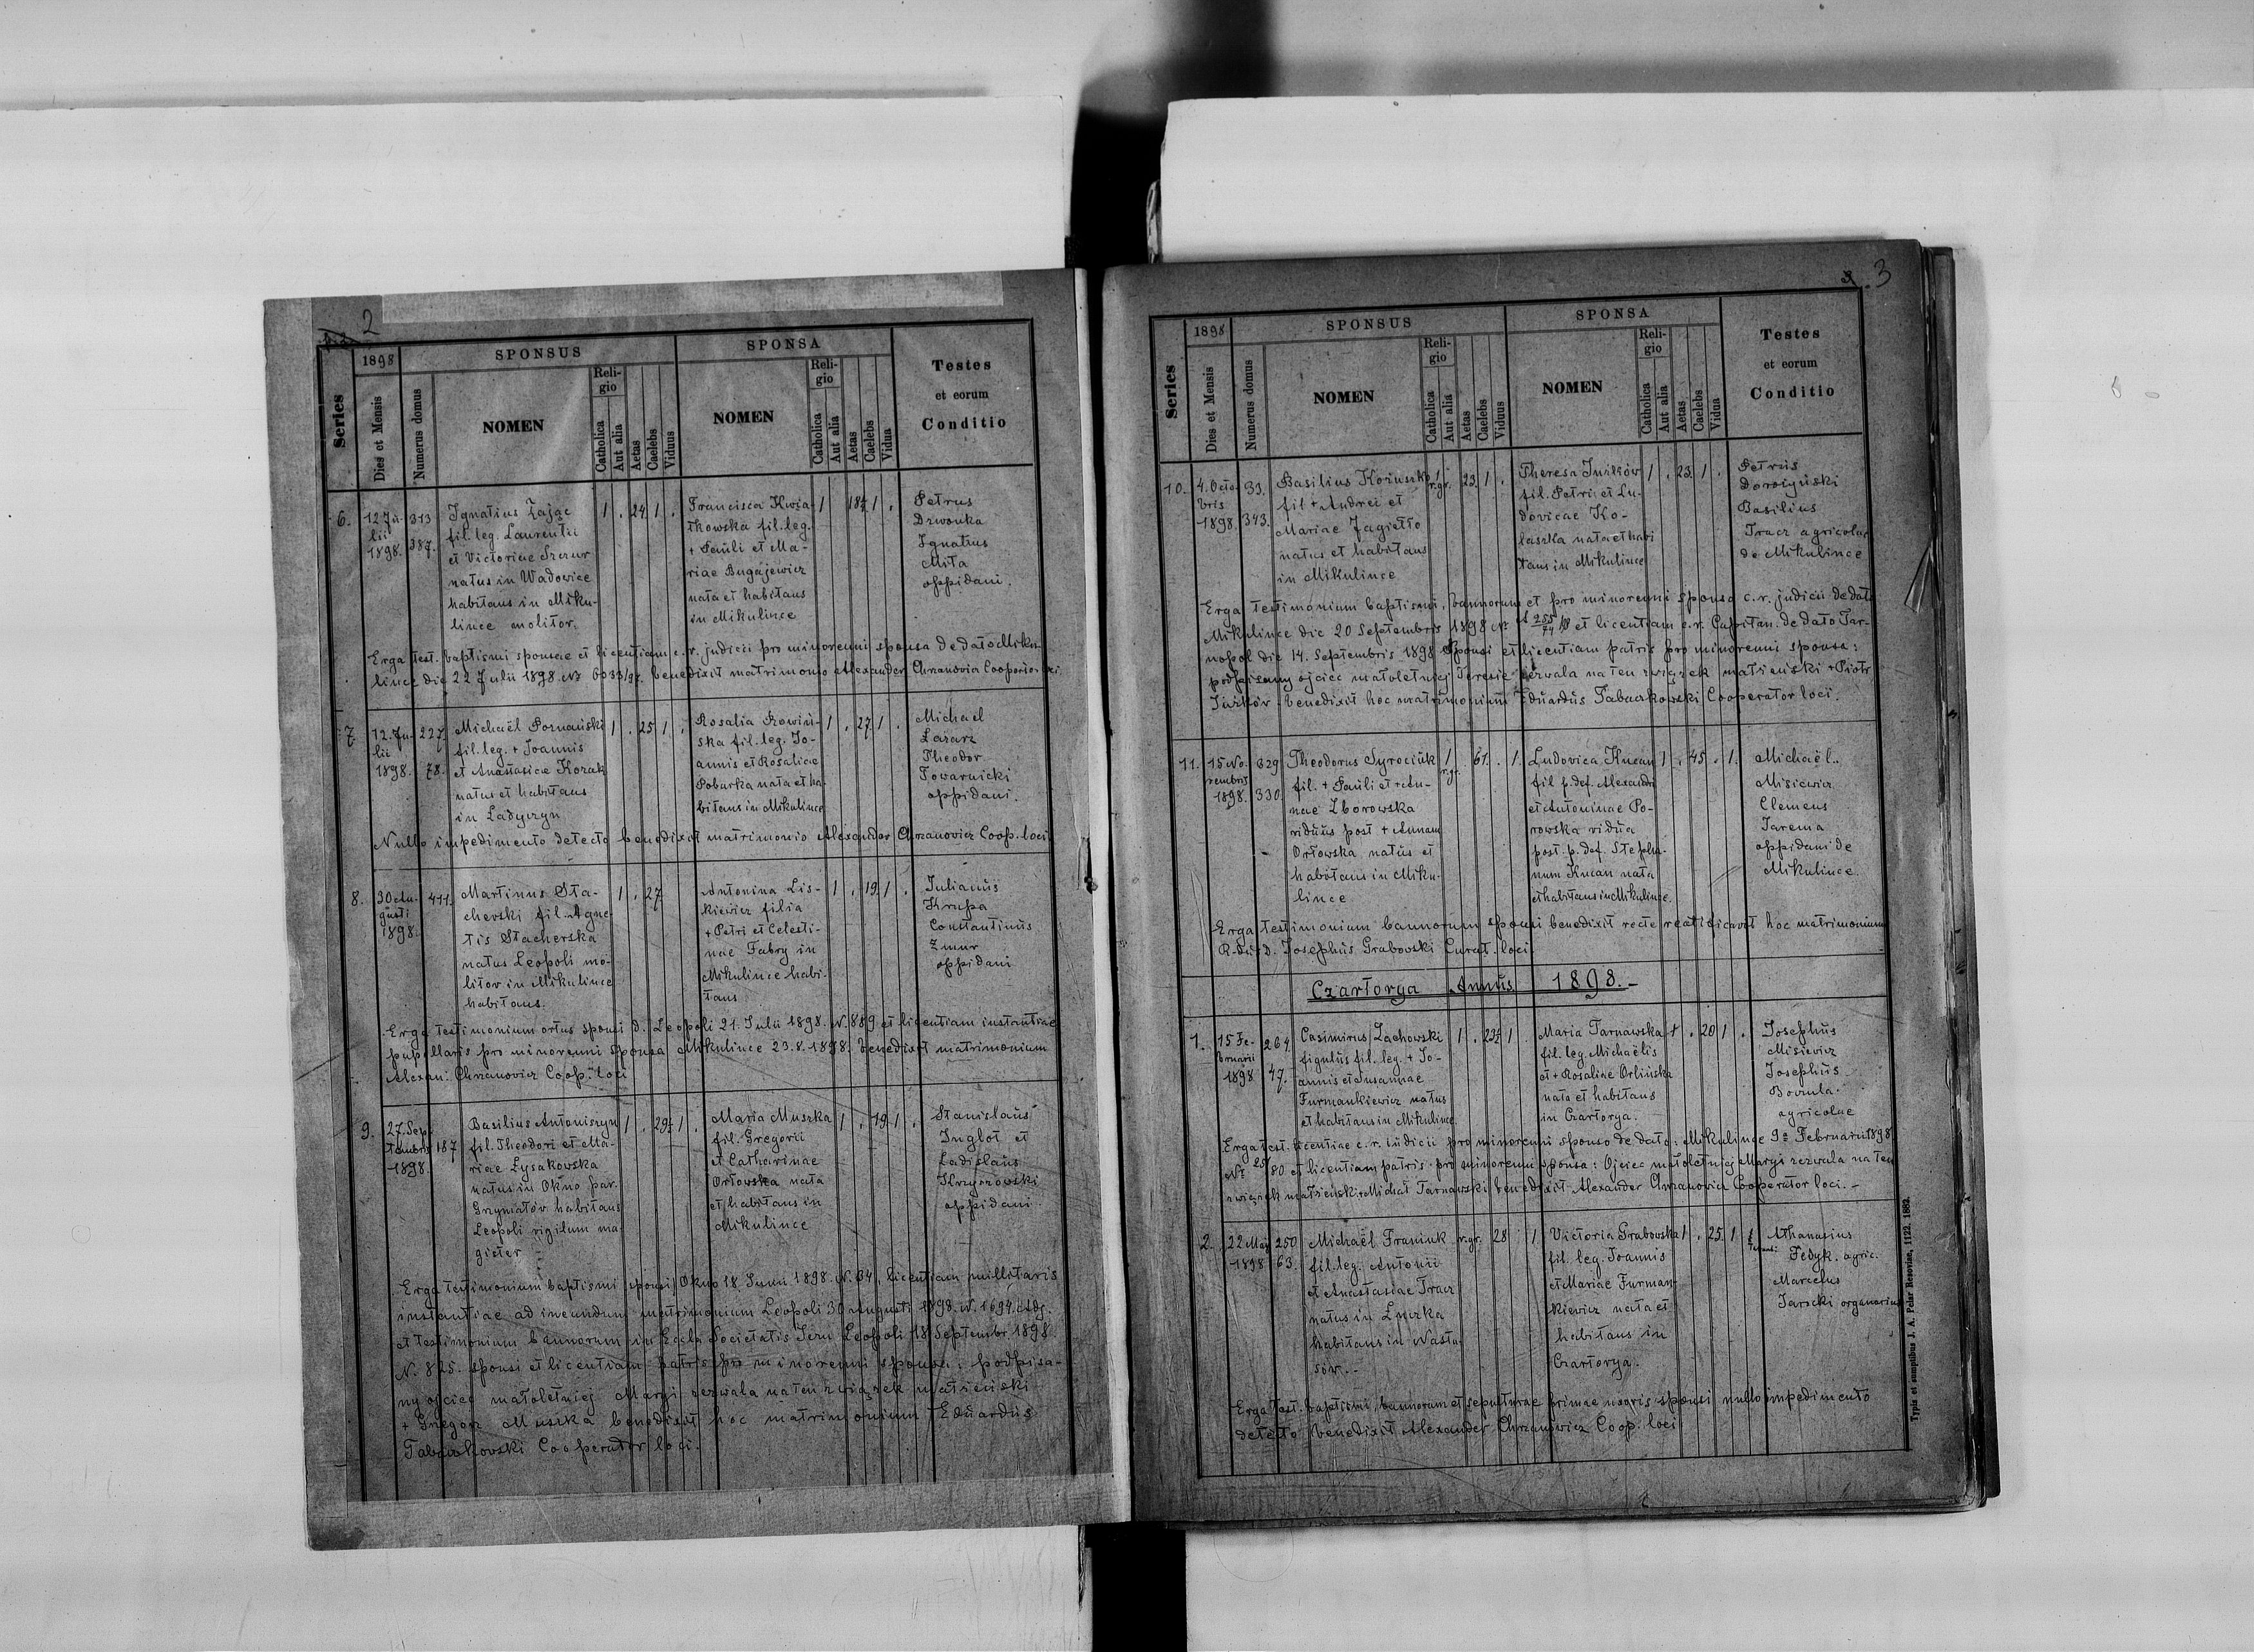 2
1898
SPONSUS
SPONSA
Series
Dies et Mensis
Numerus domus
NOMEN
Reli-
gio
Catholica
Aut alia
Aetas
Caelebs
Viduus
NOMEN
Reli-
gio
Catholica
Aut alia
Aetas
Caelebs
Vidua
Testes
et eorum
Conditio
6.
12 Ju-
lii
1898.
313
387.
Ignatius Zając
fil. leg. Laurentii
et Victoriae Szczur
natus in Wadowice
habitans in Miku-
lince molitor.
1 . 24 1 .
Francisca Kwia-
tkowska fil. leg.
+ Pauli et Ma-
riae Bugajewicz
nata et habitans
in Mikulince
1 18½ 1 .
Petrus
Dzwonka
Ignatius
Miła
oppidani.
Erga test. baptismi sponsae et licentiam c. r. judicii pro minorenni sponsa de dato Miku-
lince die 22 Julii 1898 № 6033/98. benedixit matrimonio Alexander Chrzanovicz Cooperator loci
7.
12. Ju-
lii
1898.
227.
78.
Michaël Poznański
fil. leg. + Joannis
et Anastasiae Kozak
natus et habitans
in Ladyczyn
1 . 25 1 .
Rosalia Rowiń-
ska fil. leg. Jo-
annis et Rosaliae
Poburka nata et ha-
bitans in Mikulince
1 . 27 1 .
Michael
Lazarz
Theodor
Towarnicki
oppidani.
Nullo impedimento detecto benedixit matrimonio Alexander Chrzanovicz Coop. loci.
8.
30 Au-
gusti
1898.
411.
Martinus Sta-
cherski fil. Agne-
tis Stacherska
natus Leopoli mo-
litor in Mikulince
habitans.
1 . 27
Antonina Lis-
kiewicz filia
+ Petri et Celesti-
nae Fabry in
Mikulince habi-
tans
1 . 19 1 .
Julianus
Krupa
Constantinus
Żmur
oppidani
Erga testimonium ortus sponsi D. Leopoli 21. Julii 1898. N. 889 et licentiam instantiae
pupillaris pro minorenni sponsa Mikulince 23. 8. 1898. benedixit matrimonium
Alexan. Chrzanovicz Coop. loci
9.
27. Sep-
tembris
1898
187
Basilius Antoniszyn
fil. Theodori et Ma-
riae Łysakowska
natus in Okno par.
Grzymałów habitans
Leopoli vigilum ma-
gister
1 . 29½ 1 .
Maria Muszka
fil. Gregorii
et Catharinae
Orłowska nata
et habitans in
Mikulince
1 . 19 1 .
Stanislaus
Inglot et
Ladislaus
Krzyżowski
oppidani
Erga testimonium baptismi sponsi Okno 18. Junii 1898. N. 64, licentiam millitaris
instantiae ad ineundum matrimonium Leopoli 30 Augusti 1898. N. 1694. Adg.
et testimonium bannorum in Eccla Societatis Jesu Leopoli 18 Septembr. 1898
N. 825. sponsi et licentiam patris pro minorenni sponsa: podpisa-
ny ojciec małoletniej Maryi zezwala na ten związek małżeński
+ Grzegorz Muszka benedixit hoc matrimonium Eduardus
Tabaczkowski Cooperator loci.
3
1898
SPONSUS
SPONSA
Series
Dies et Mensis
Numerus domus
NOMEN
Reli-
gio
Catholica
Aut alia
Aetas
Caelebs
Viduus
NOMEN
Reli-
gio
Catholica
Aut alia
Aetas
Caelebs
Vidua
Testes
et eorum
Conditio
10.
4. Octo-
bris
1898.
33.
343.
Basilius Kożuszko
fil + Andrei et
Mariae Jagiełło
natus et habitans
in Mikulince
1 r. gr. 23. 1 .
Theresa Juzków
fil. Petri et Lu-
dovicae Ko-
laszka nata et habi
tans in Mikulince
1 . 23. 1 .
Petrus
Dorożyński
Basilius
Tracz agricolae
de Mikulince
Erga testimonium baptismi, bannorum et pro minorenni sponsa c. r. judicii de dato
Mikulince die 20 Septembris 1898 № A 255/74 /98 et licentiam c. r. Capitan. de dato Tar-
nopol die 14. Septembris 1898 Sponsi et licentiam patris pro minorenni sponsa:
podpisany ojciec małoletniej Teresie zezwala na ten związek małżeński + Piotr
Juzków. benedixit hoc matrimonium Eduardus Tabaczkowski Cooperator loci.
11.
15 No-
vembris
1898.
329
330
Theodorus Syrociuk
fil. + Pauli et + An-
nae Zborowska
viduus post + Annam
Orłowska natus et
habitans in Miku-
lince
1 r. gr. 61. . 1.
Ludovica Kucan
fil p. def. Alexandri
et Antoninae Po-
rowska vidua
post p. def. Stepha-
num Kucan nata
et habitans in Mikulince.
1 . 45 . 1.
Michaël
Misiewicz
Clemens
Jarema
oppidani de
Mikulince.
Erga testimonium bannorum sponsi benedixit recte reatificavit hoc matrimonium
R-dus D. Josephus Grabowski Curat. loci.
Czartorya Annus 1898.
1.
15 Fe-
bruarii
1898
264
47.
Casimirus Lachowski
figulus fil. leg. + Jo-
annis et Susannae
Furmankiewicz natus
et habitans in Mikulince
1 . 23½ 1
Maria Tarnawska
fil. leg. Michaëlis
et + Rosaliae Orlińska
nata et habitans
in Czartorya.
1 . 20 1 .
Josephus
Misiewicz
Josephus
Bozula
agricolae
Erga test. licentiae c. r. iudicii pro minorenni sponso de dato: Mikulince 9ª Februarii 1898
№ 25/80 et licentiam patris pro minorenni sponsa: Ojciec małoletniej Maryi zezwala na ten
związek małżeński + Michał Tarnawski benedixit Alexander Chrzanovicz Cooperator loci.
2.
22 Maj
1898
250
63.
Michaël Franiuk
fil. leg. Antonii
et Anastasiae Tracz
natus in Luczka
habitans in Nastа-
sów.
r. gr. 28 1
Victoria Grabowska
fil. leg. Joannis
et Mariae Furman-
kiewicz nata et
habitans in
Czartorya.
1 . 25 1
Athanasius
Fedyk. agric.
Marcelus
Jarocki organarius
Erga test. baptismi, bannorum et sepulturae primae uxoris sponsi nullo impedimento
detecto benedixit Alexander Chrzanowicz Coop. loci
Typis et sumptibus J. A. Pelar Resoviae, 1122. 1882.